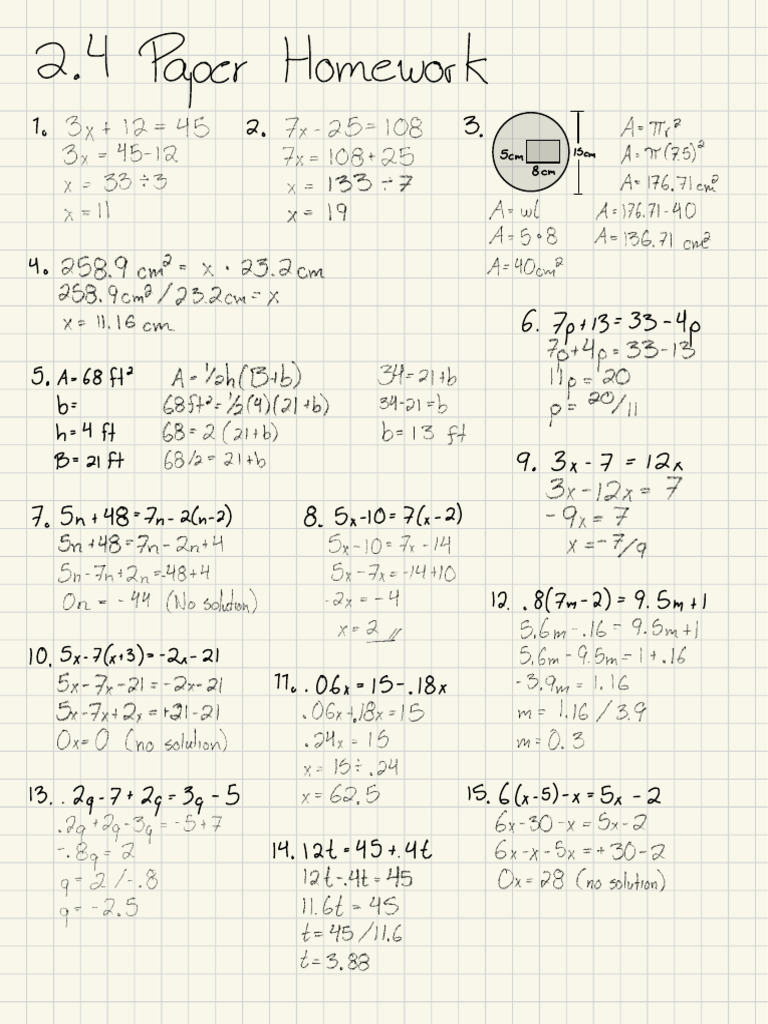 2.4 Paper Homework
1. 3x + 12 = 45
3x = 45-12
x = 33 ÷ 3
x = 11
2. 7x - 25 = 108
7x = 108 + 25
x = 133 ÷ 7
x = 19
3.
5cm
8cm
15cm
A = πr²
A = π(7.5)²
A = 176.71 cm²
A = wl
A = 5 • 8
A = 40cm²
A = 176.71 - 40
A = 136.71 cm²
4. 258.9 cm² = x • 23.2 cm
258.9cm² / 23.2cm = x
x = 11.16 cm
5. A = 68 ft²
b =
h = 4 ft
B = 21 ft
A = 1/2h(B+b)
68ft² = 1/2(4)(21+b)
68 = 2(21+b)
68/2 = 21+b
34 = 21+b
34-21 = b
b = 13 ft
6. 7p+13 = 33-4p
7p+4p = 33-13
11p = 20
p = 20/11
7. 5n+48 = 7n-2(n-2)
5n+48 = 7n-2n+4
5n-7n+2n = -48+4
0n = -44 (No solution)
8. 5x-10 = 7(x-2)
5x-10 = 7x-14
5x-7x = -14+10
-2x = -4
x = 2
9. 3x - 7 = 12x
3x-12x = 7
-9x = 7
x = -7/9
10. 5x-7(x+3) = -2x-21
5x-7x-21 = -2x-21
5x-7x+2x = +21-21
0x = 0 (no solution)
11. .06x = 15-.18x
.06x+.18x = 15
.24x = 15
x = 15 ÷ .24
x = 62.5
12. .8(7m-2) = 9.5m+1
5.6m-.16 = 9.5m+1
5.6m-9.5m = 1+.16
-3.9m = 1.16
m = 1.16 / 3.9
m = 0.3
13. .2q-7+2q = 3q-5
.2q+2q-3q = -5+7
-.8q = 2
q = 2 / -.8
q = -2.5
14. 12t = 45+.4t
12t-.4t = 45
11.6t = 45
t = 45/11.6
t = 3.88
15. 6(x-5)-x = 5x-2
6x-30-x = 5x-2
6x-x-5x = +30-2
0x = 28 (no solution)